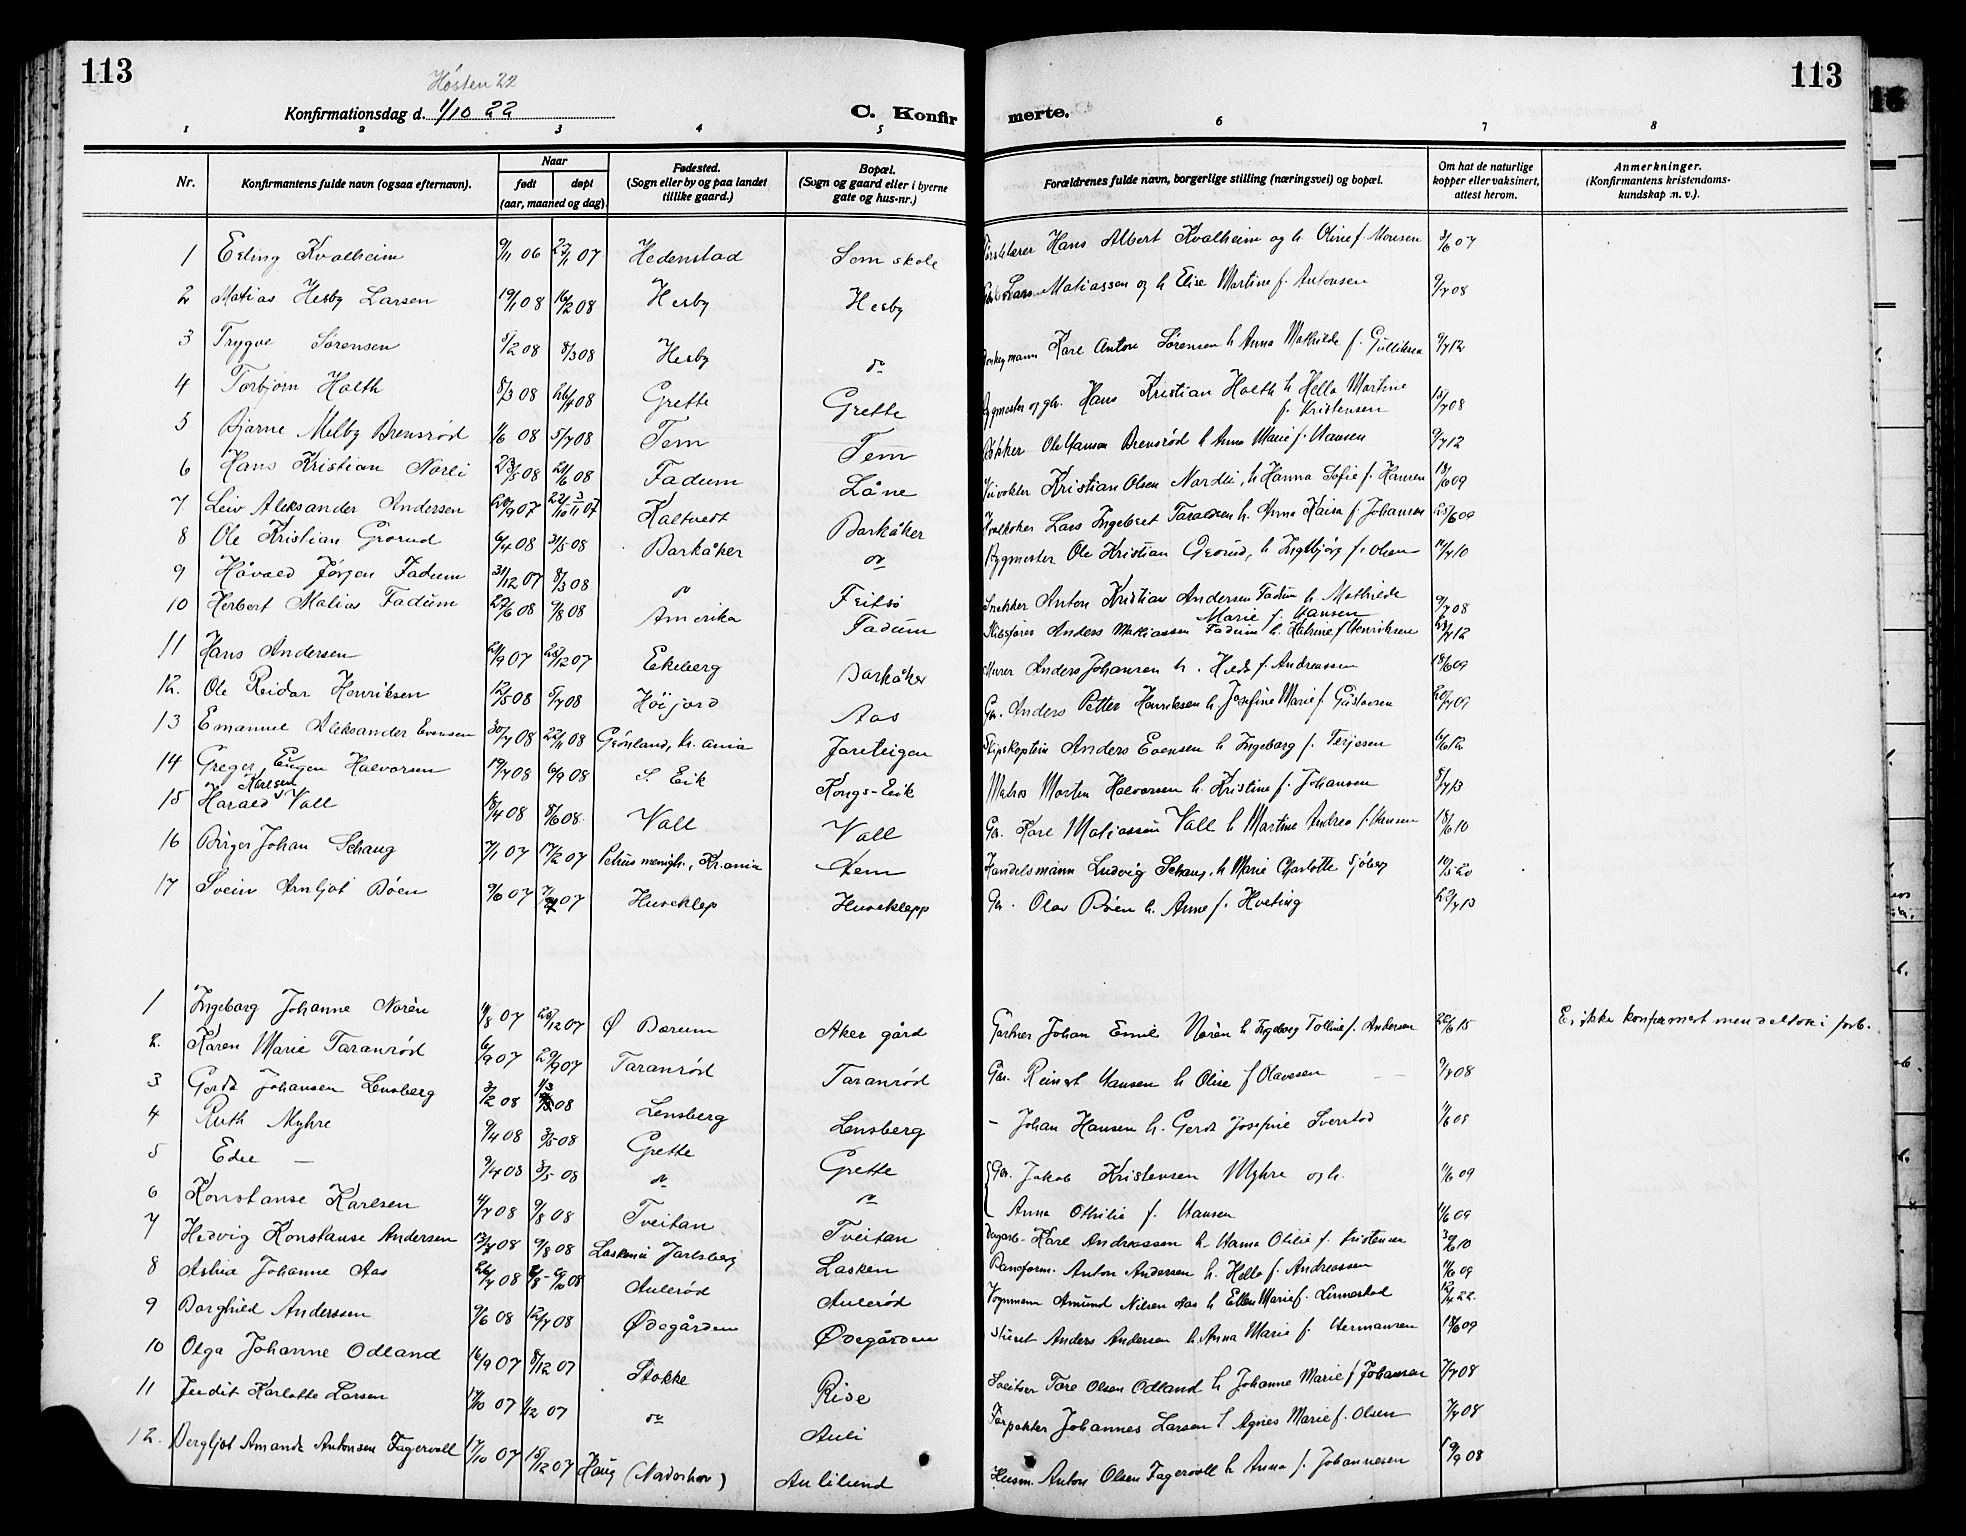 113
Høsten 22
Konfirmationsdag d. 1/10 22
C. Konfir
merte.
113
1 2 3 4 5 6 7 8
Nr.
Konfirmantens fulde navn (ogsaa efternavn).
Naar
født
døpt
(aar, maaned og dag)
Fødested.
(Sogn eller by og paa landet
tillike gaard.)
Bopæl.
(Sogn og gaard eller i byerne
gate og hus-nr.)
Forældrenes fulde navn, borgerlige stilling (næringsvei) og bopæl.
Om hat de naturlige
kopper eller vaksinert,
attest herom.
Anmerkninger.
(Konfirmantens kristendoms-
kundskap m. v.).
1 Erling Kvalheim 9/11 06 27/1 07 Hedenstad Sem skole Hans Albert Kvalheim og h. Oline f. Monsen 3/6 07
2 Matias Hesby Larsen 19/1 08 16/2 08 Hesby Hesby Lars Matiassen og h Elise Martine f. Antonsen 9/7 08
3 Trygve Sørensen 5/2 08 8/3 08 Hesby do Karl Anton Sørensen h Anna Mathilde f. Gulliksen 9/7 12
4 Torbjørn Holth 8/3 08 26/4 08 Grette Grette Bygmester og gbr. Hans Kristian Holth h Hella Martine
f. Kristensen 15/7 08
5 Bjarne Melby Brensrød 1/6 08 5/7 08 Tem Tem Ole Hansen Brensrød h Anna Marie f. Hansen 9/7 12
6 Hans Kristian Norli 23/5 08 21/6 08 Fadum Låne Kristian Olsen Nordli, h Hanna Sofie f. Hansen 18/6 09
7 Leiv Aleksander Andersen 20/9 07 Kaltvedt Barkåker Lars Ingebret Taraldsen h. Anna Kaisa f. Johansen 25/6 09
8 Ole Kristian Grorud 6/4 08 31/5 08 Barkåker do Bygmester Ole Kristian Grorud, h Ingebjørg f. Olsen 11/7 10
9 Håvald Jørgen Fadum 31/12 07 8/3 08 do Feitsø Snekker Anton Kristian Andersen Fadum h Mathilde
Marie f. Hansen 9/7 08
10 Herbert Matias Fadum 27/6 08 9/8 08 Amerika Fadum Skibsfører Anders Matiassen Fadum h. Katrine f Henriksen 23/7 12
11 Hans Andersen 21/9 07 25/12 07 Ekeberg Barkåker Murer Anders Johansen h. Hilda f. Andreassen 18/6 09
12. Ole Reidar Henriksen 12/5 08 5/7 08 Høijord Aas Gbr. Anders Petter Henriksen h Josefine Marie f. Gustavsen 20/7 09
13 Emanuel Aleksander Evensen 30/7 08 22/11 08 Grønland, Kr.ania Jareteigen Skipskaptein Anders Evensen h Ingeborg f. Terjesen
14 Greger Eugen Halvorsen 19/7 08 6/9 08 S. Eik Kongs-Eik Matros Morten Halvorsen h. Kristine f. Johansen 5/7 13
15 Harald Karlsen Vall 18/4 08 8/6 08 Vall Vall Gbr. Karl Matiassen Vall h Martine Andrea f. Hansen 18/6 10
16 Birger Johan Schaug 7/1 07 17/2 07 Petrus menigh., Kr.ania Sem Handelsmann Ludvig Schaug, h Marie Charlotte Sjøberg 10/5 20
17 Svein Arnljot Bøen 9/6 07 7/7 07 Huseklep Huseklepp Gbr. Olav Bøen h. Anne f. Hveting 23/7 13
1 Ingeborg Johanne Norén 11/8 07 26/12 07 Ø Bærum Aker gård Gartner Johan Emil Norén h Ingeborg Talline f. Andersen 22/6 15 Er ikke konfirmert men deltok i forb.
2. Karen Marie Taranrød 6/9 07 29/9 07 Taranrød Taranrød Gbr. Reinert Hansen h Olise f Olavesen 9/7 08
3 Gerda Johansen Lensberg 3/2 08 Lensberg Lensberg – Johan Hansen h. Gerda Josefine Sverstad 11/6 09
4 Ruth Myhre 9/4 08 3/5 08 Grette Grette Gbr. Jakob Kristensen Myhre og h. 11/6 09
5 Edel – 9/4 08 3/5 08 do do Anna Othilie f. Hansen 11/6 09
6 Konstanse Karlsen 4/7 08 9/8 08 Tveitan Tveitan Dagarb. Karl Andreassen h. Hanna Otilie f. Kristensen
7 Hedvig Konstanse Andersen 13/7 08 9/8 08 Lasken i Jarlsberg Lasken Baneform. Anton Andersen h. Hella f. Andreassen 11/6 09
8 Aslua Johanne Aas 26/7 08 Aulerød Aulerød Vognmann Amund Nilsen Aas h Ellen Marie f. Linnestad 12/7 22.
9 Borghild Anderssen 9/6 08 12/7 08 Ødegården Ødegården Anders Andersen h. Anna Marie f. Hermansen 18/6 09
10 Olga Johanne Odland 16/9 07 8/12 07 Stokke Rise Sveitser Tore Olsen Odland h Johanne Marie f Johansen 7/7 08
11 Judit Karlotte Larsen 17/10 07 1/12 07 do Auli Forpakter Johannes Larsen h Agnes Marie f. Olsen 7/7 08
12. Bergljot Amanda Antonsen Fagervoll 17/10 07 15/12 07 Haug (Naderhov) Aulilund Husm. Anton Olsen Fagervoll h Anna f. Johannesen 19/9 08